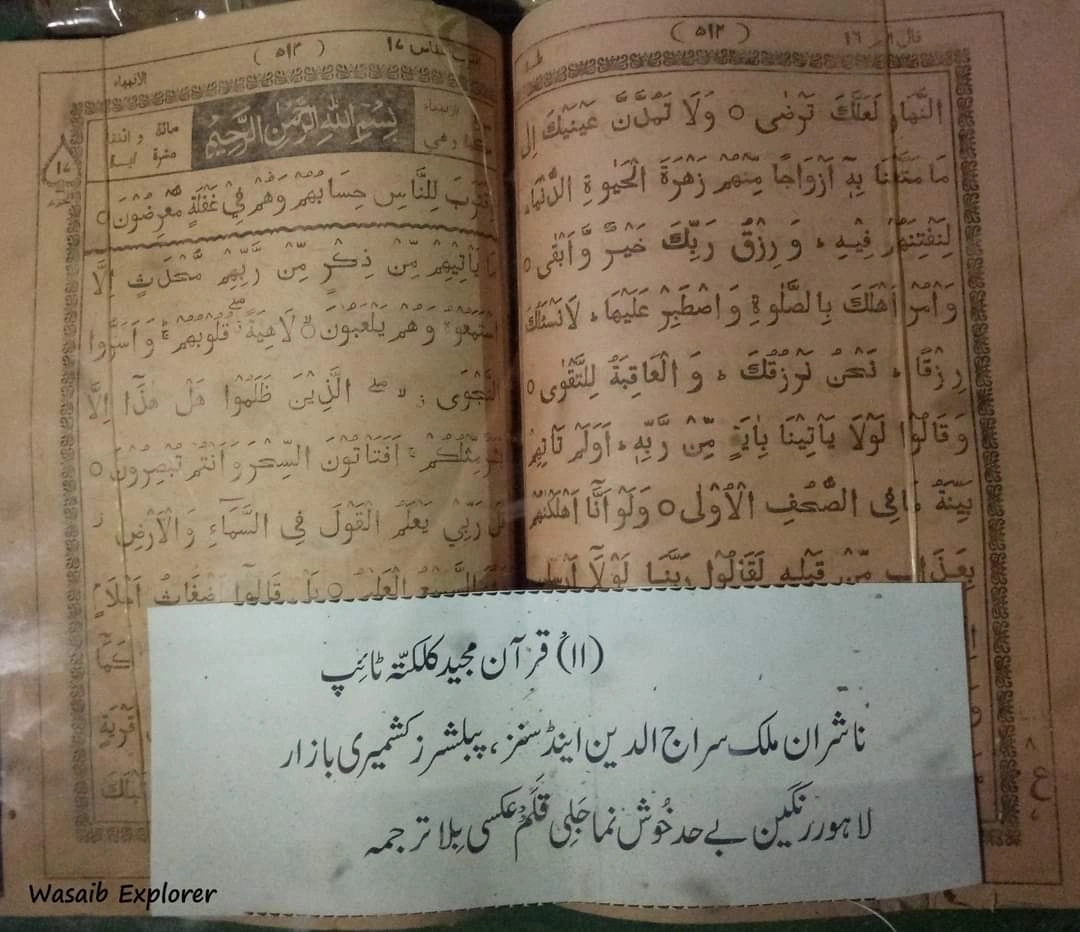 قال الم ١٦
( ٥١٢ )
طٰهٰ
النَّهَارِ لَعَلَّكَ تَرْضٰى ○ وَلَا تَمُدَّنَّ عَيْنَيْكَ اِلٰى
مَا مَتَّعْنَا بِهٖٓ اَزْوَاجًا مِّنْهُمْ زَهْرَةَ الْحَيٰوةِ الدُّنْيَا
لِنَفْتِنَهُمْ فِيْهِ ؕ وَ رِزْقُ رَبِّكَ خَيْرٌ وَّ اَبْقٰى ○
وَ اْمُرْ اَهْلَكَ بِالصَّلٰوةِ وَ اصْطَبِرْ عَلَيْهَا ؕ لَا نَسْئَلُكَ
رِزْقًا ؕ نَحْنُ نَرْزُقُكَ ؕ وَ الْعَاقِبَةُ لِلتَّقْوٰى ○
وَ قَالُوْا لَوْلَا يَاْتِيْنَا بِاٰيَةٍ مِّنْ رَّبِّهٖ ؕ اَوَلَمْ تَاْتِهِمْ
بَيِّنَةُ مَا فِى الصُّحُفِ الْاُوْلٰى ○ وَلَوْ اَنَّآ اَهْلَكْنٰهُمْ
بِعَذَابٍ مِّنْ قَبْلِهٖ لَقَالُوْا رَبَّنَا لَوْلَآ
ع
للناس ١٧
( ٥١٣ )
الانبياء
بِسْمِ اللّٰهِ الرَّحْمٰنِ الرَّحِيْمِ
مائة و اثنتا
عشرة اية
١٧
اِقْتَرَبَ لِلنَّاسِ حِسَابُهُمْ وَهُمْ فِيْ غَفْلَةٍ مُّعْرِضُوْنَ ○
مَا يَاْتِيْهِمْ مِّنْ ذِكْرٍ مِّنْ رَّبِّهِمْ مُّحْدَثٍ اِلَّا
اسْتَمَعُوْهُ وَ هُمْ يَلْعَبُوْنَ ○ لَاهِيَةً قُلُوْبُهُمْ ؕ وَ اَسَرُّوا
النَّجْوَى الَّذِيْنَ ظَلَمُوْا هَلْ هٰذَآ اِلَّا
بَشَرٌ مِّثْلُكُمْ ۚ اَفَتَاْتُوْنَ السِّحْرَ وَ اَنْتُمْ تُبْصِرُوْنَ ○
قٰلَ رَبِّيْ يَعْلَمُ الْقَوْلَ فِى السَّمَآءِ وَ الْاَرْضِ
وَهُوَ السَّمِيْعُ الْعَلِيْمُ ○ بَلْ قَالُوْٓا اَضْغَاثُ اَحْلَامٍ
كَمَآ
قَرْيَةٍ
(۱۱) قرآن مجید کلکتّہ ٹائپ
ناشران ملک سراج الدین اینڈ سنز، پبلشرز کشمیری بازار
لاہور رنگین بے حد خُوش نما جَلِی قَلَمْ عکسی بِلا ترجمہ
Wasaib Explorer